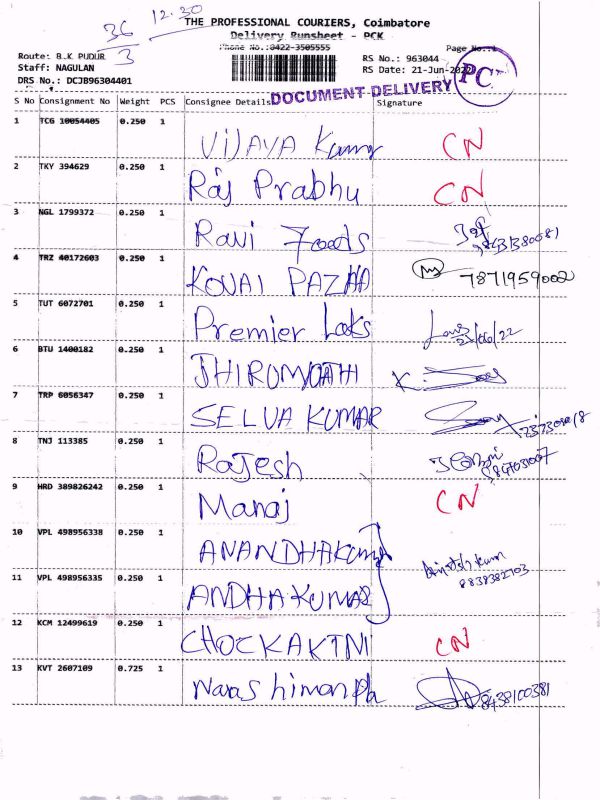 36
3
12.30
THE PROFESSIONAL COURIERS, Coimbatore
Delivery Runsheet - PCK
Phone No.:0422-3505555
Page No.:1
Route: B.K PUDUR
Staff: NAGULAN
DRS No.: DCJB96304401
RS No.: 963044
RS Date: 21-Jun-2022
PC
DOCUMENT DELIVERY
S No Consignment No Weight PCS Consignee Details Signature
1 TCG 10054405 0.250 1 VIJAYA Kumar CN
2 TKY 394629 0.250 1 Raj Prabhu CN
3 NGL 1799372 0.250 1 Ravi Foods
4 TRZ 40172603 0.250 1 KOVAI PAZHA 7871959002
5 TUT 6072701 0.250 1 Premier Loks 21/06/22
6 BTU 1400182 0.250 1
7 TRP 6056347 0.250 1 SELVA KUMAR
8 TNJ 113385 0.250 1 Rajesh
9 HRD 389826242 0.250 1 Manoj CN
10 VPL 498956338 0.250 1 ANANDHAKumar
11 VPL 498956335 0.250 1 ANDHAKUMAR 8838382703
12 KCM 12499619 0.250 1 CN
13 KVT 2607109 0.725 1 8438100381